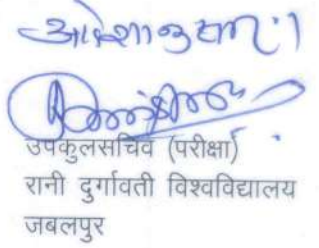 आदेशानुसार।
उपकुलसचिव (परीक्षा)
रानी दुर्गावती विश्वविद्यालय
जबलपुर